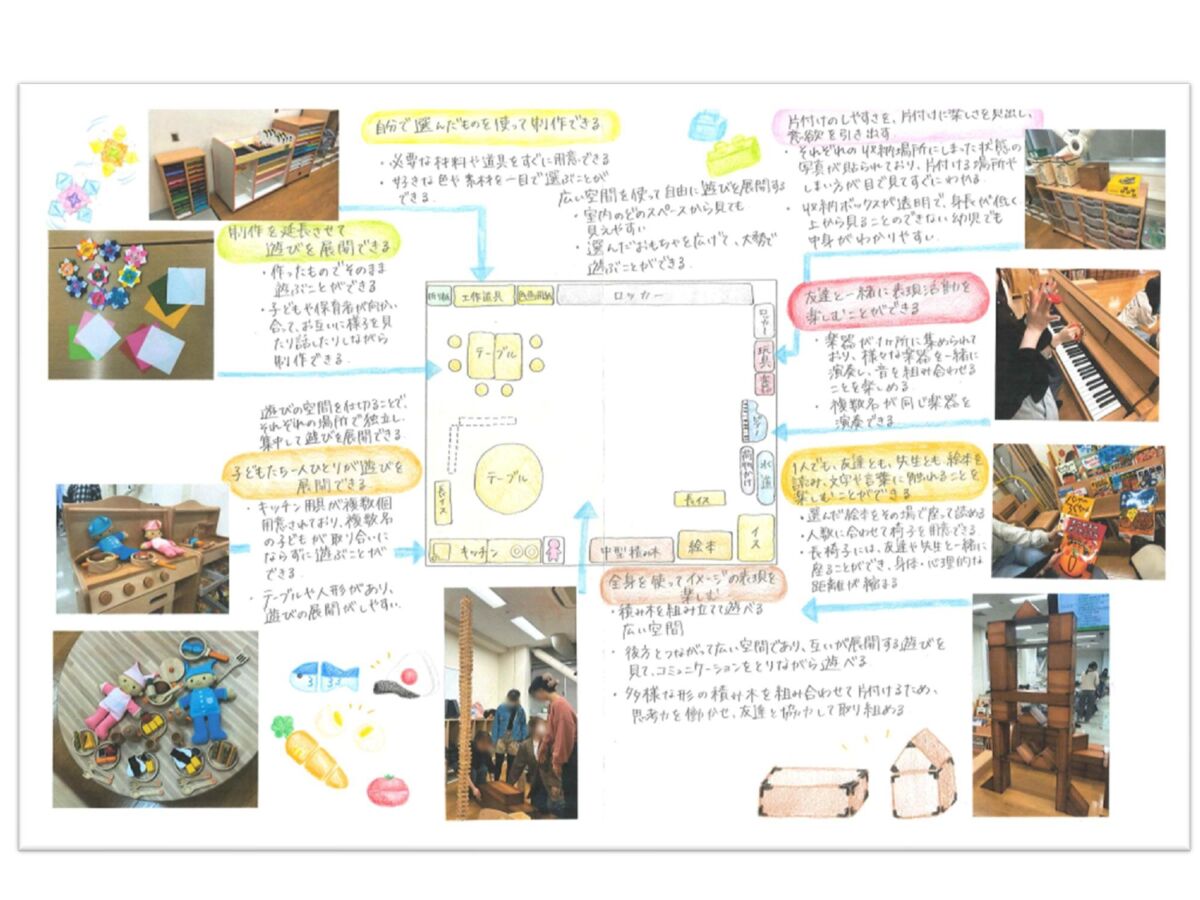 自分で選んだものを使って制作できる
・必要な材料や道具をすぐに用意できる
・好きな色や素材を一目で選ぶことが
できる.
片付けのしやすさを、片付けに楽しさを見出し、
意欲を引き出す
・それぞれの収納場所にしまった状態の
写真が貼られており、片付ける場所や
しまい方が目で見てすぐにわかる.
・収納ボックスが透明で、身長が低く
上から見ることのできない幼児でも
中身がわかりやすい.
広い空間を使って自由に遊びを展開する
・室内のどのスペースから見ても
見えやすい
・選んだおもちゃを広げて、大勢で
遊ぶことができる.
制作を延長させて
遊びを展開できる
・作ったものでそのまま
遊ぶことができる
・子どもや保育者が向かい
合って、お互いに様子を見
たり話したりしながら
制作できる.
折り紙
工作道具
色画用紙
ロッカー
ロッカー
玩具
楽器
ピアノ
荷物かけ
水道
テーブル
テーブル
長イス
長イス
キッチン
中型積み木
絵本
イス
友達と一緒に表現活動を
楽しむことができる
・楽器が1か所に集められて
おり、様々な楽器を一緒に
演奏し、音を組み合わせる
ことを楽しめる.
・複数名が同じ楽器を
演奏できる.
遊びの空間を仕切ることで、
それぞれの場所で独立し、
集中して遊びを展開できる.
子どもたち一人ひとりが遊びを
展開できる
・キッチン用具が複数個
用意されており、複数名
の子どもが取り合いに
ならずに遊ぶことが
できる.
・テーブルや人形があり、
遊びの展開がしやすい.
1人でも、友達とも、先生とも絵本を
読み、文字や言葉に触れることを
楽しむことができる
・選んだ絵本をその場で座って読める
・人数に合わせて椅子を用意できる.
・長椅子には、友達や先生と一緒に
座ることができ、身体・心理的な
距離が縮まる
全身を使ってイメージの表現を
楽しむ
・積み木を組み立てて遊べる
広い空間
・後方とつながって広い空間であり、互いが展開する遊びを
見て、コミュニケーションをとりながら遊べる
・多様な形の積み木を組み合わせて片付けるため、
思考力を働かせ、友達と協力して取り組める